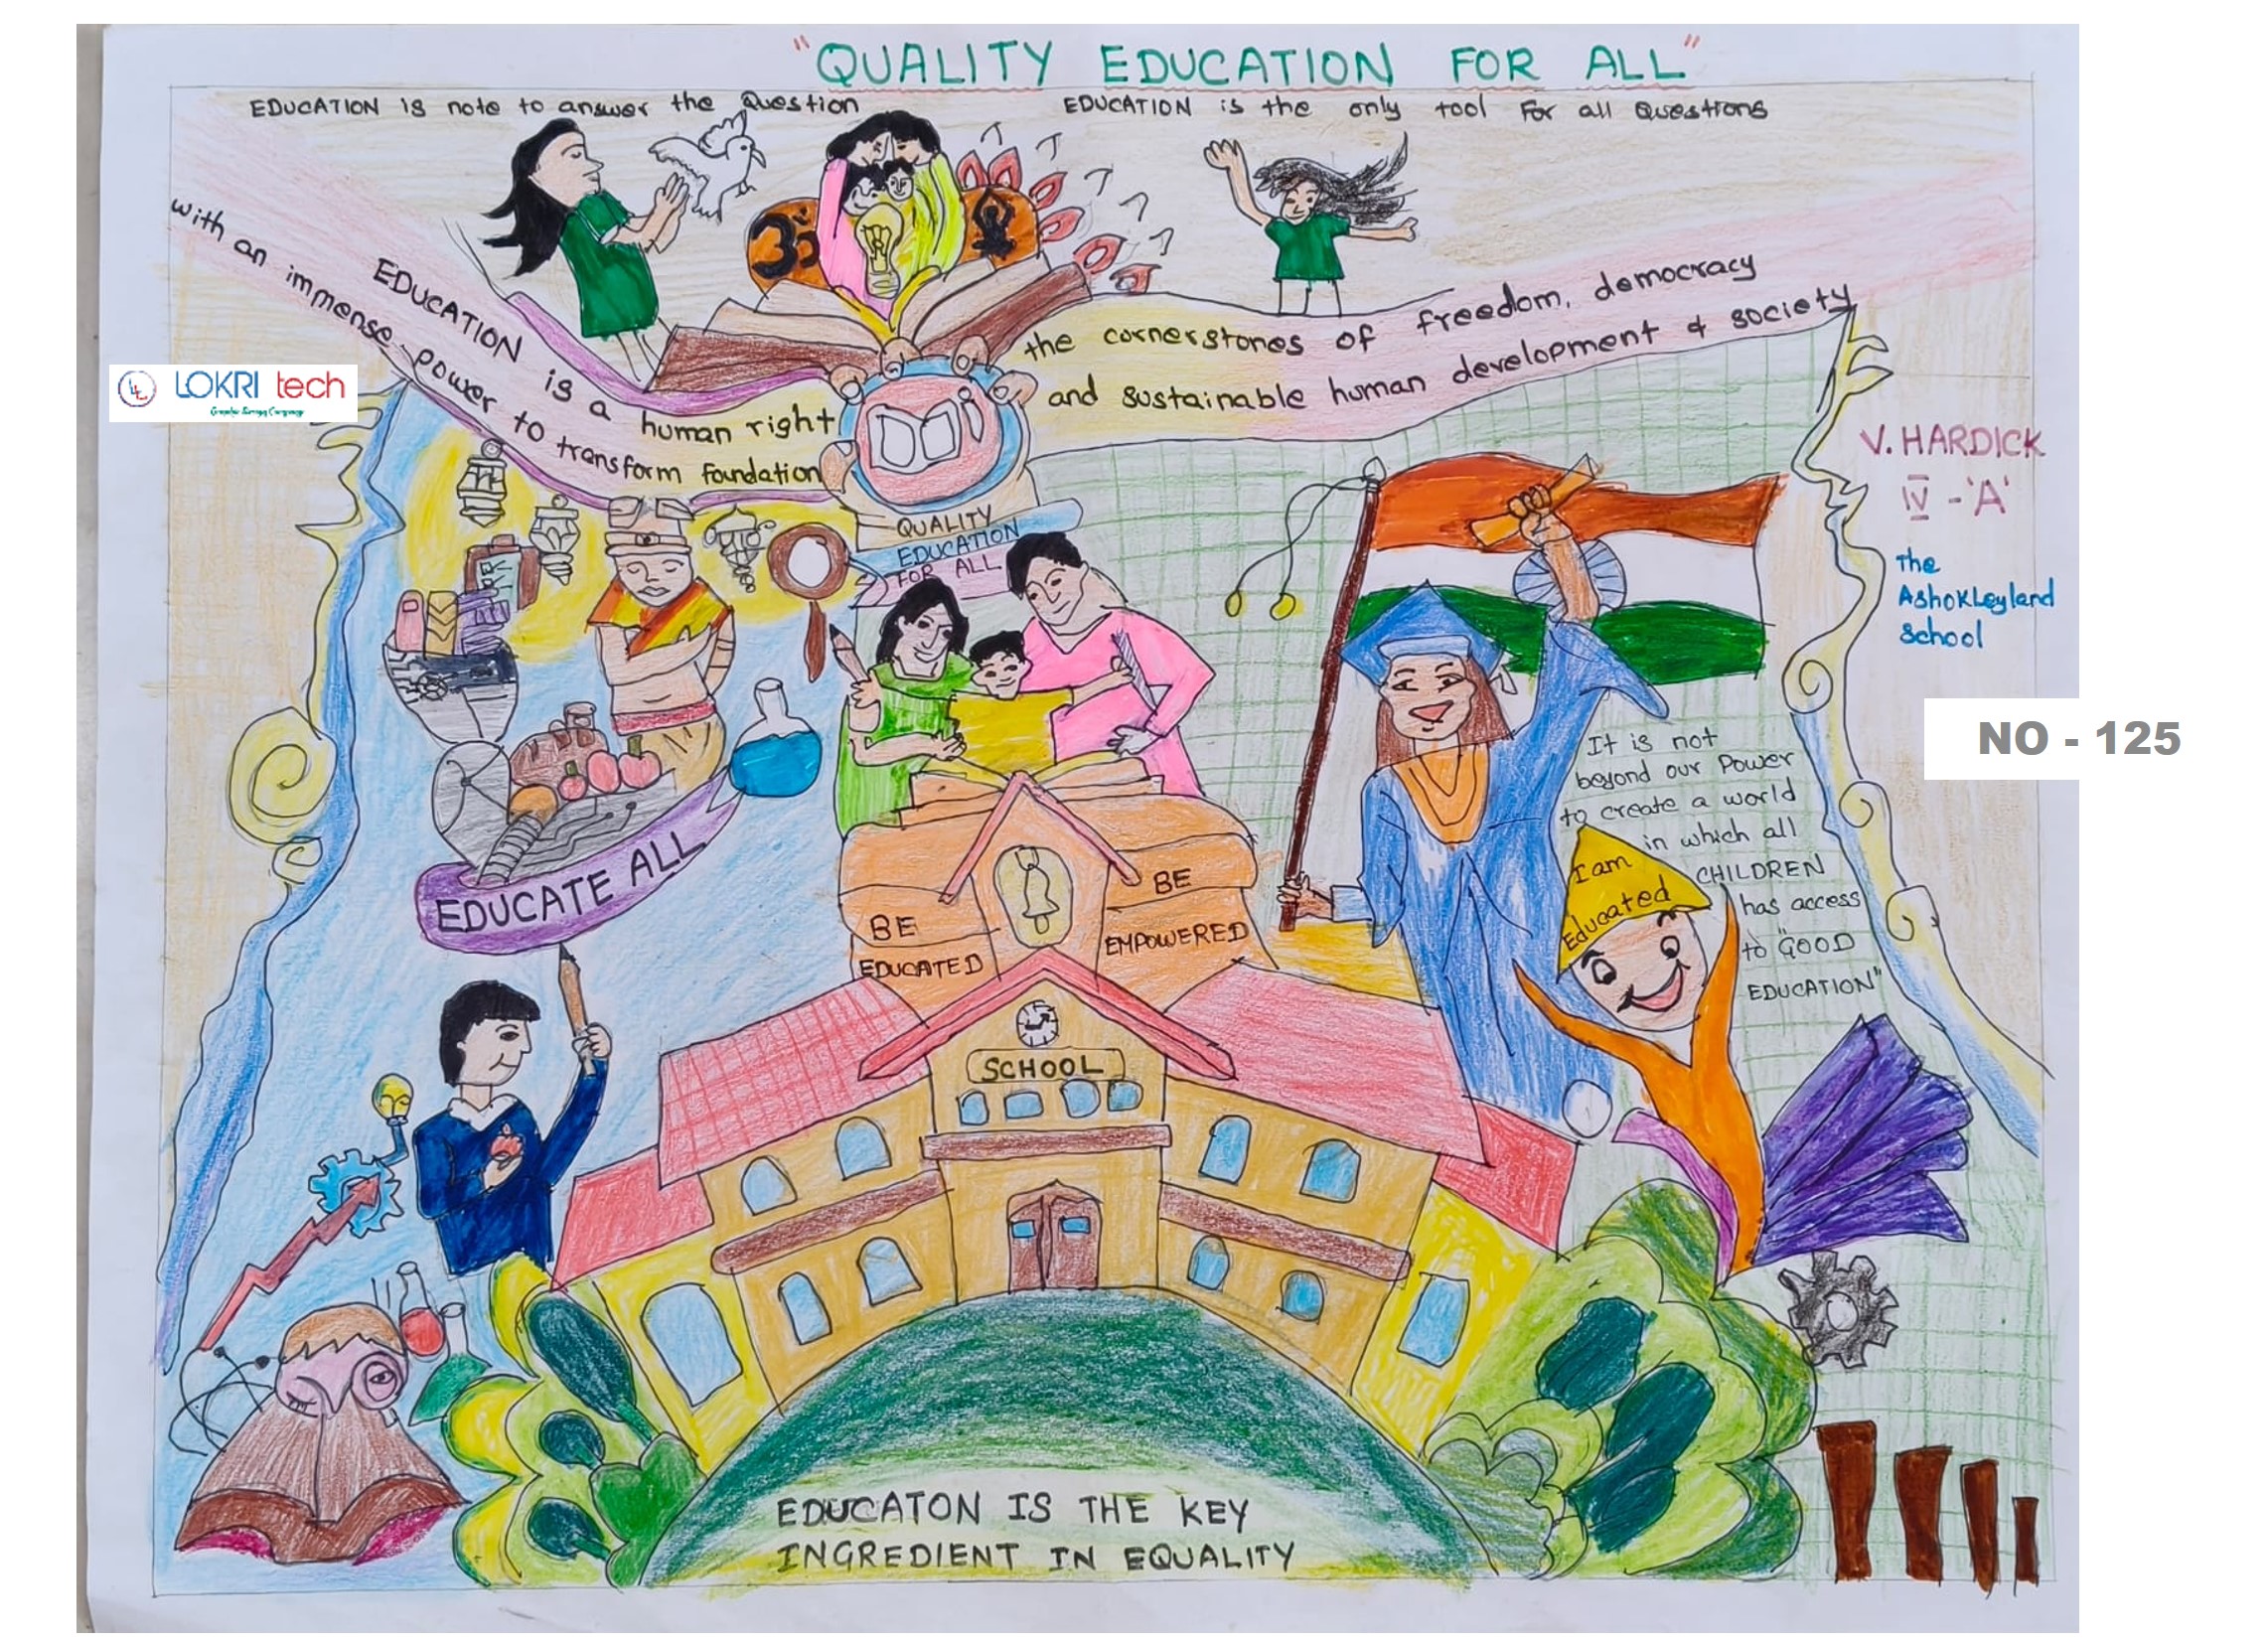 "QUALITY EDUCATION FOR ALL"
EDUCATION is note to answer the Question
EDUCATION is the only tool For all Questions
EDUCATION is a human right
with an immense power to transform foundation
the cornerstones of freedom, democracy
and sustainable human development & society
LOKRI tech
V. HARDICK
IV - 'A'
The
AshokLeyland
School
NO - 125
QUALITY
EDUCATION
FOR ALL
It is not
beyond our Power
to create a world
in which all
CHILDREN
has access
to "GOOD
EDUCATION"
I am
Educated
EDUCATE ALL
BE
EDUCATED
BE
EMPOWERED
SCHOOL
EDUCATON IS THE KEY
INGREDIENT IN EQUALITY
ॐ